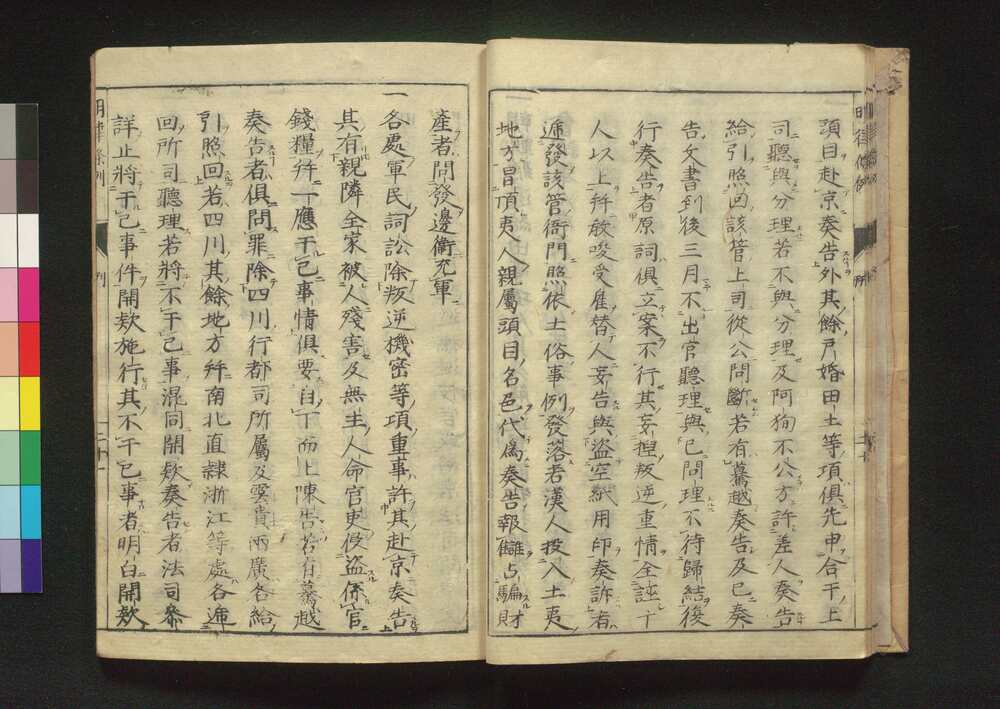 項目赴京奏告外其餘戶婚田土等項俱先申合干上
司聽與分理若不與分理及阿狥不公方許差人奏告
給引照回該管上司從公問斷若有驀越奏告及已奏
告文書到後三月不出官聽理與已問理不待歸結復
行奏告者原詞俱立案不行其妄捏叛逆重情全誣十
人以上幷敎唆受雇替人妄告與盜空紙用印奏訴者
遞發該管衙門照依土俗事例發落若漢人投入土夷
地方冒頂夷人親屬頭目名色代爲奏告報讎占騙財
產者問發邊衛充軍
一
各處軍民詞訟除叛逆機密等項重事許其赴京奏告
其有親隣全家被人殘害及無主人命官吏侵盜係官
錢糧幷一應干己事情俱要自下而上陳告若有驀越
奏告者俱問罪除四川行都司所屬及雲貴兩廣各給
引照回若四川其餘地方幷南北直隷浙江等處各遞
回所司聽理若將不干己事混同開欵奏告者法司參
詳止將干己事件開欵施行其不干己事者明白開欵
明律條例
刑
二十
明律條例
刑
二十一